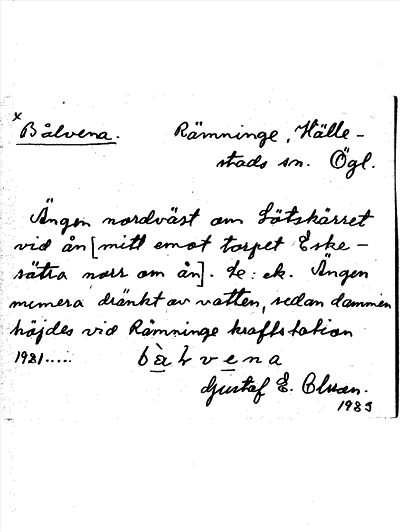 x Bålvena. Rämninge, Hälle-
stads sn. Ögl.
Ängen nordväst om Sötskärret
vid ån [mitt emot torpet Eske-
sätra norr om ån]. Se: ek. Ängen
numera dränkt av vatten, sedan dammen
höjdes vid Rämninge kraftstation
1921.....
Gustaf E. Olsson.
1983